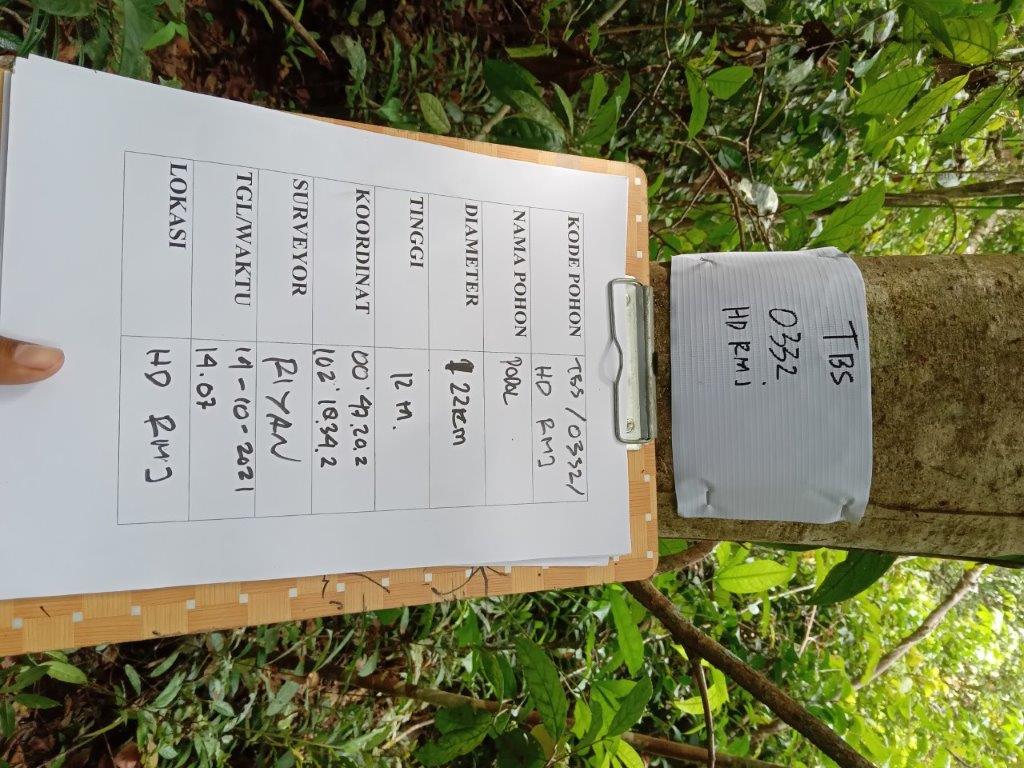 TBS
0332
HD RMJ
KODE POHON TBS / 0332 /
HD RMJ
NAMA POHON
DIAMETER 22 cm
TINGGI 12 m.
KOORDINAT 00° 47.20.2
102° 18.39.2
SURVEYOR RIYAN
TGL/WAKTU 19-10-2021
14.07
LOKASI HD RMJ